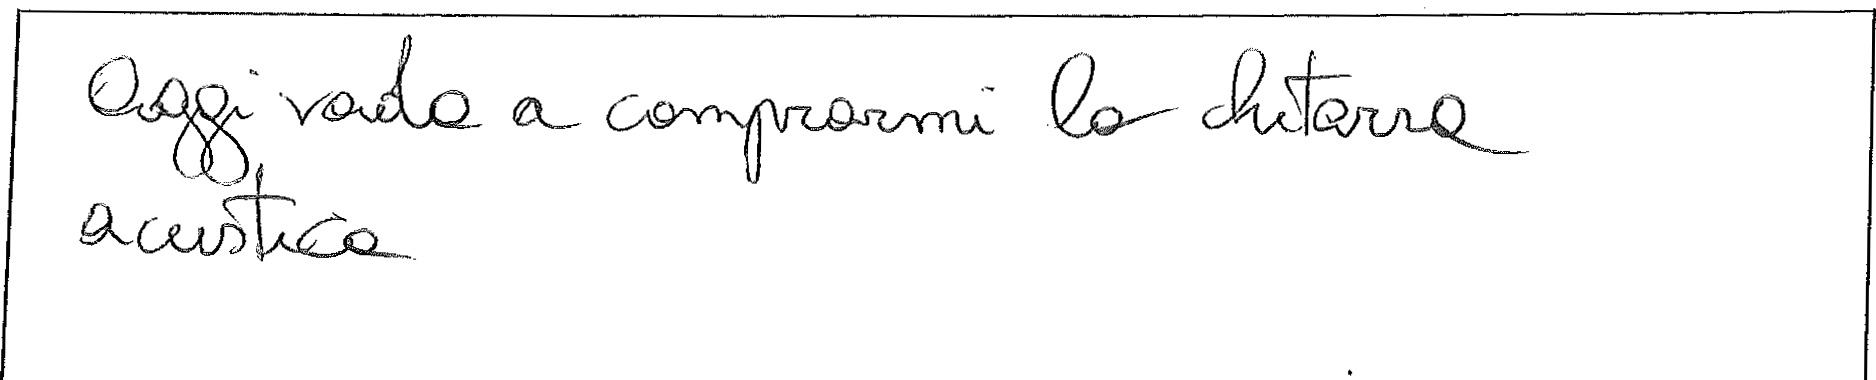 Oggi vado a comprarmi la chitarra
acustica